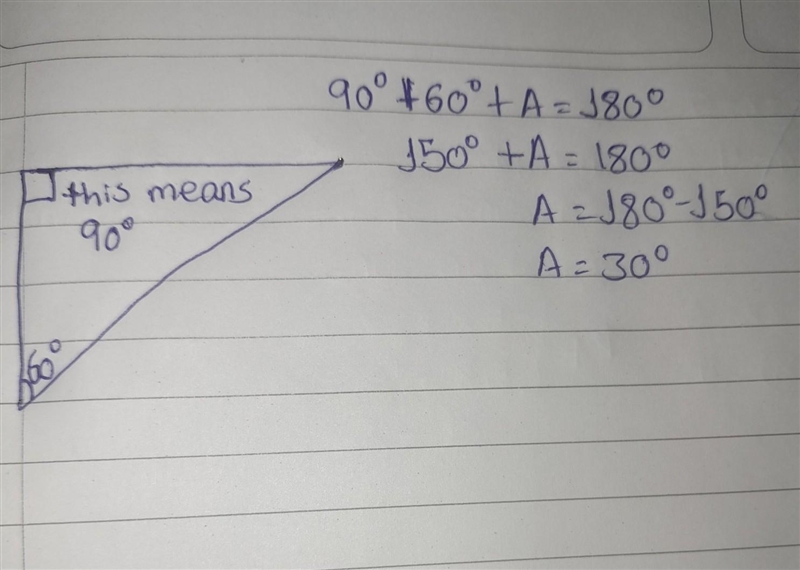 90° + 60° + A = 180°
150° + A = 180°
A = 180° - 150°
A = 30°
this means
90°
60°